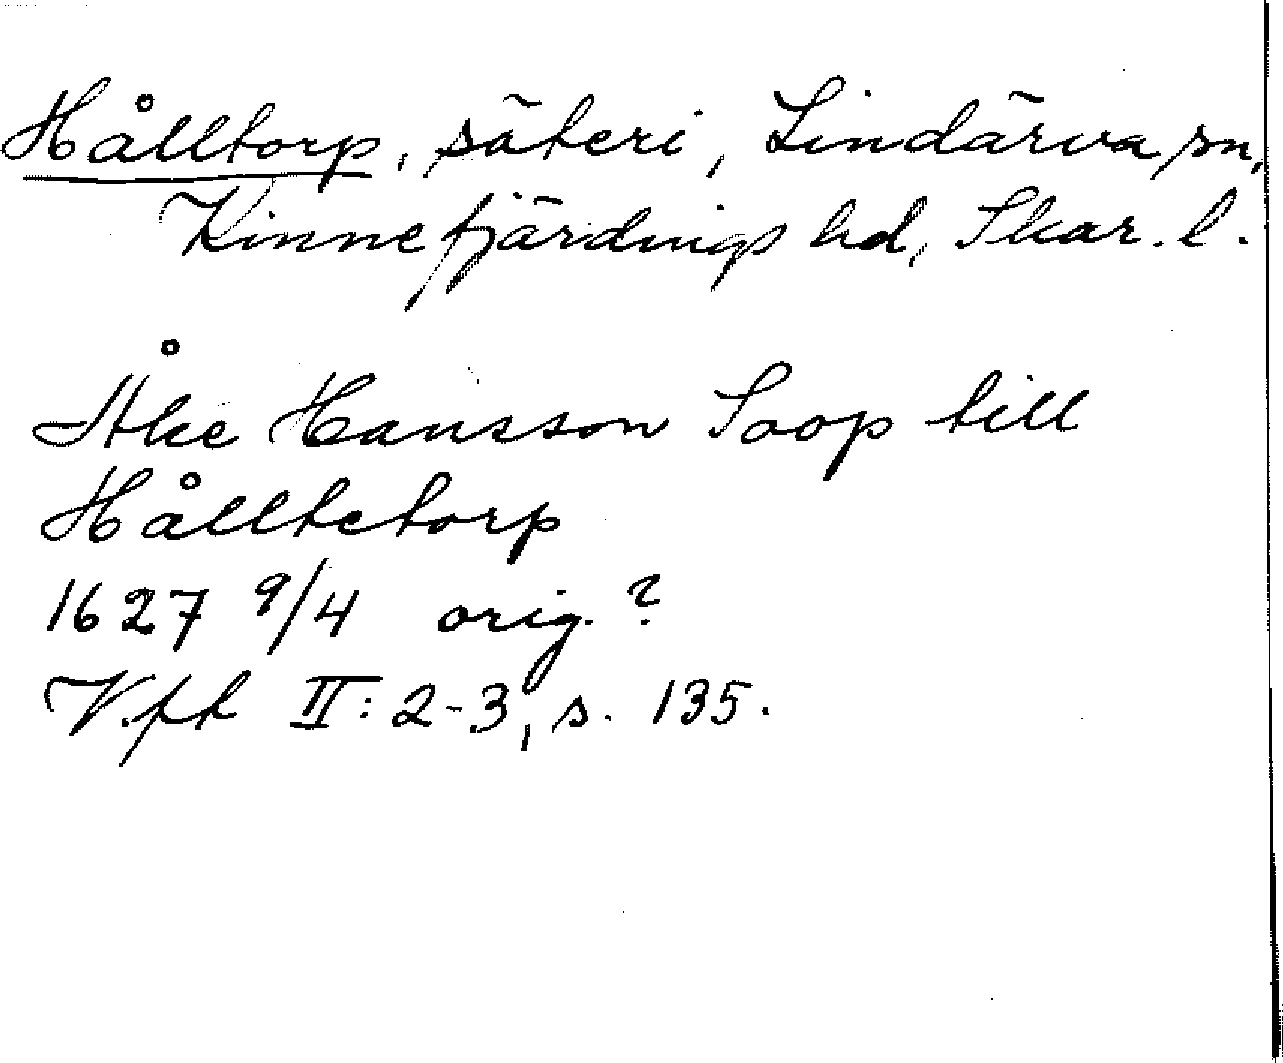 Hålltorp, säteri, Lindärva sn,
Kinnefjärdings hd, Skar. l.
Åke Hansson Soop till
Hålltetorp
1627 9/4 orig. ?
Vft II: 2-3, s. 135.